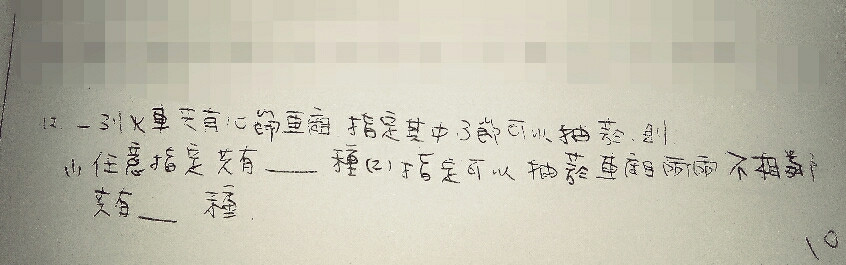 12. 一列火車共有10節車廂 指定其中3節可以抽菸,則
(1) 任意指定共有____種(2)指定可以抽菸車廂兩兩不相鄰
共有____種
10